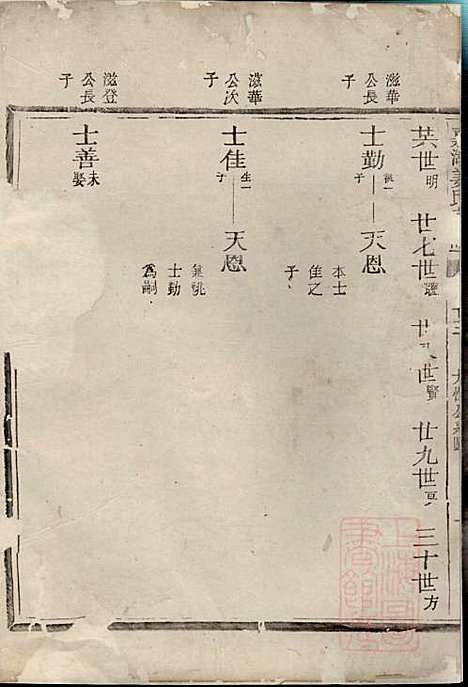 共世明 廿七世 世賢 廿九世 三十世方
滋華公長子
士勤 一子 天恩
本士佳之子
滋華公次子
士佳 生一子 天恩
兼祧士勤為嗣
滋登公長子
士善 未娶